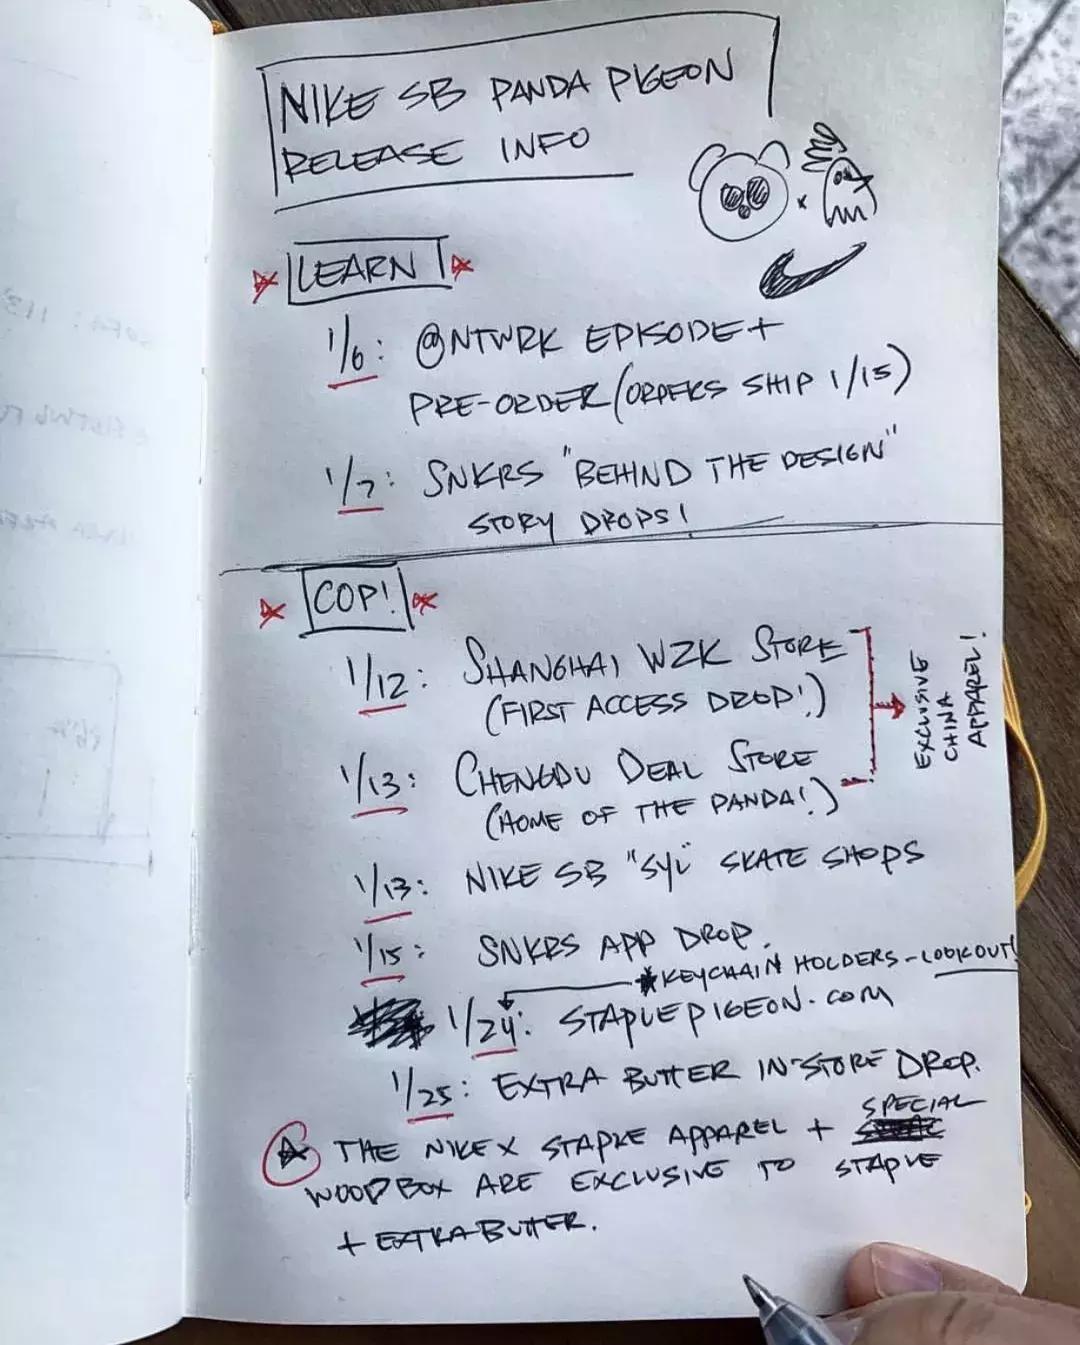 NIKE SB PANDA PIGEON
RELEASE INFO
LEARN
1/6: @NTWRK EPISODE +
PRE-ORDER (ORDERS SHIP 1/15)
1/7: SNKRS "BEHIND THE DESIGN"
STORY DROPS!
COP!
1/12: SHANGHAI WZK STORE
(FIRST ACCESS DROP!)
1/13: CHENGDU DEAL STORE
(HOME OF THE PANDA!)
EXCLUSIVE
CHINA
APPAREL!
1/13: NIKE SB "SYL" SKATE SHOPS
1/15: SNKRS APP DROP.
*KEYCHAIN HOLDERS - LOOKOUT!
1/24: STAPLEPIGEON.COM
1/25: EXTRA BUTTER IN-STORE DROP.
THE NIKE X STAPLE APPAREL + SPECIAL
WOODBOX ARE EXCLUSIVE TO STAPLE
+ EXTRA BUTTER.